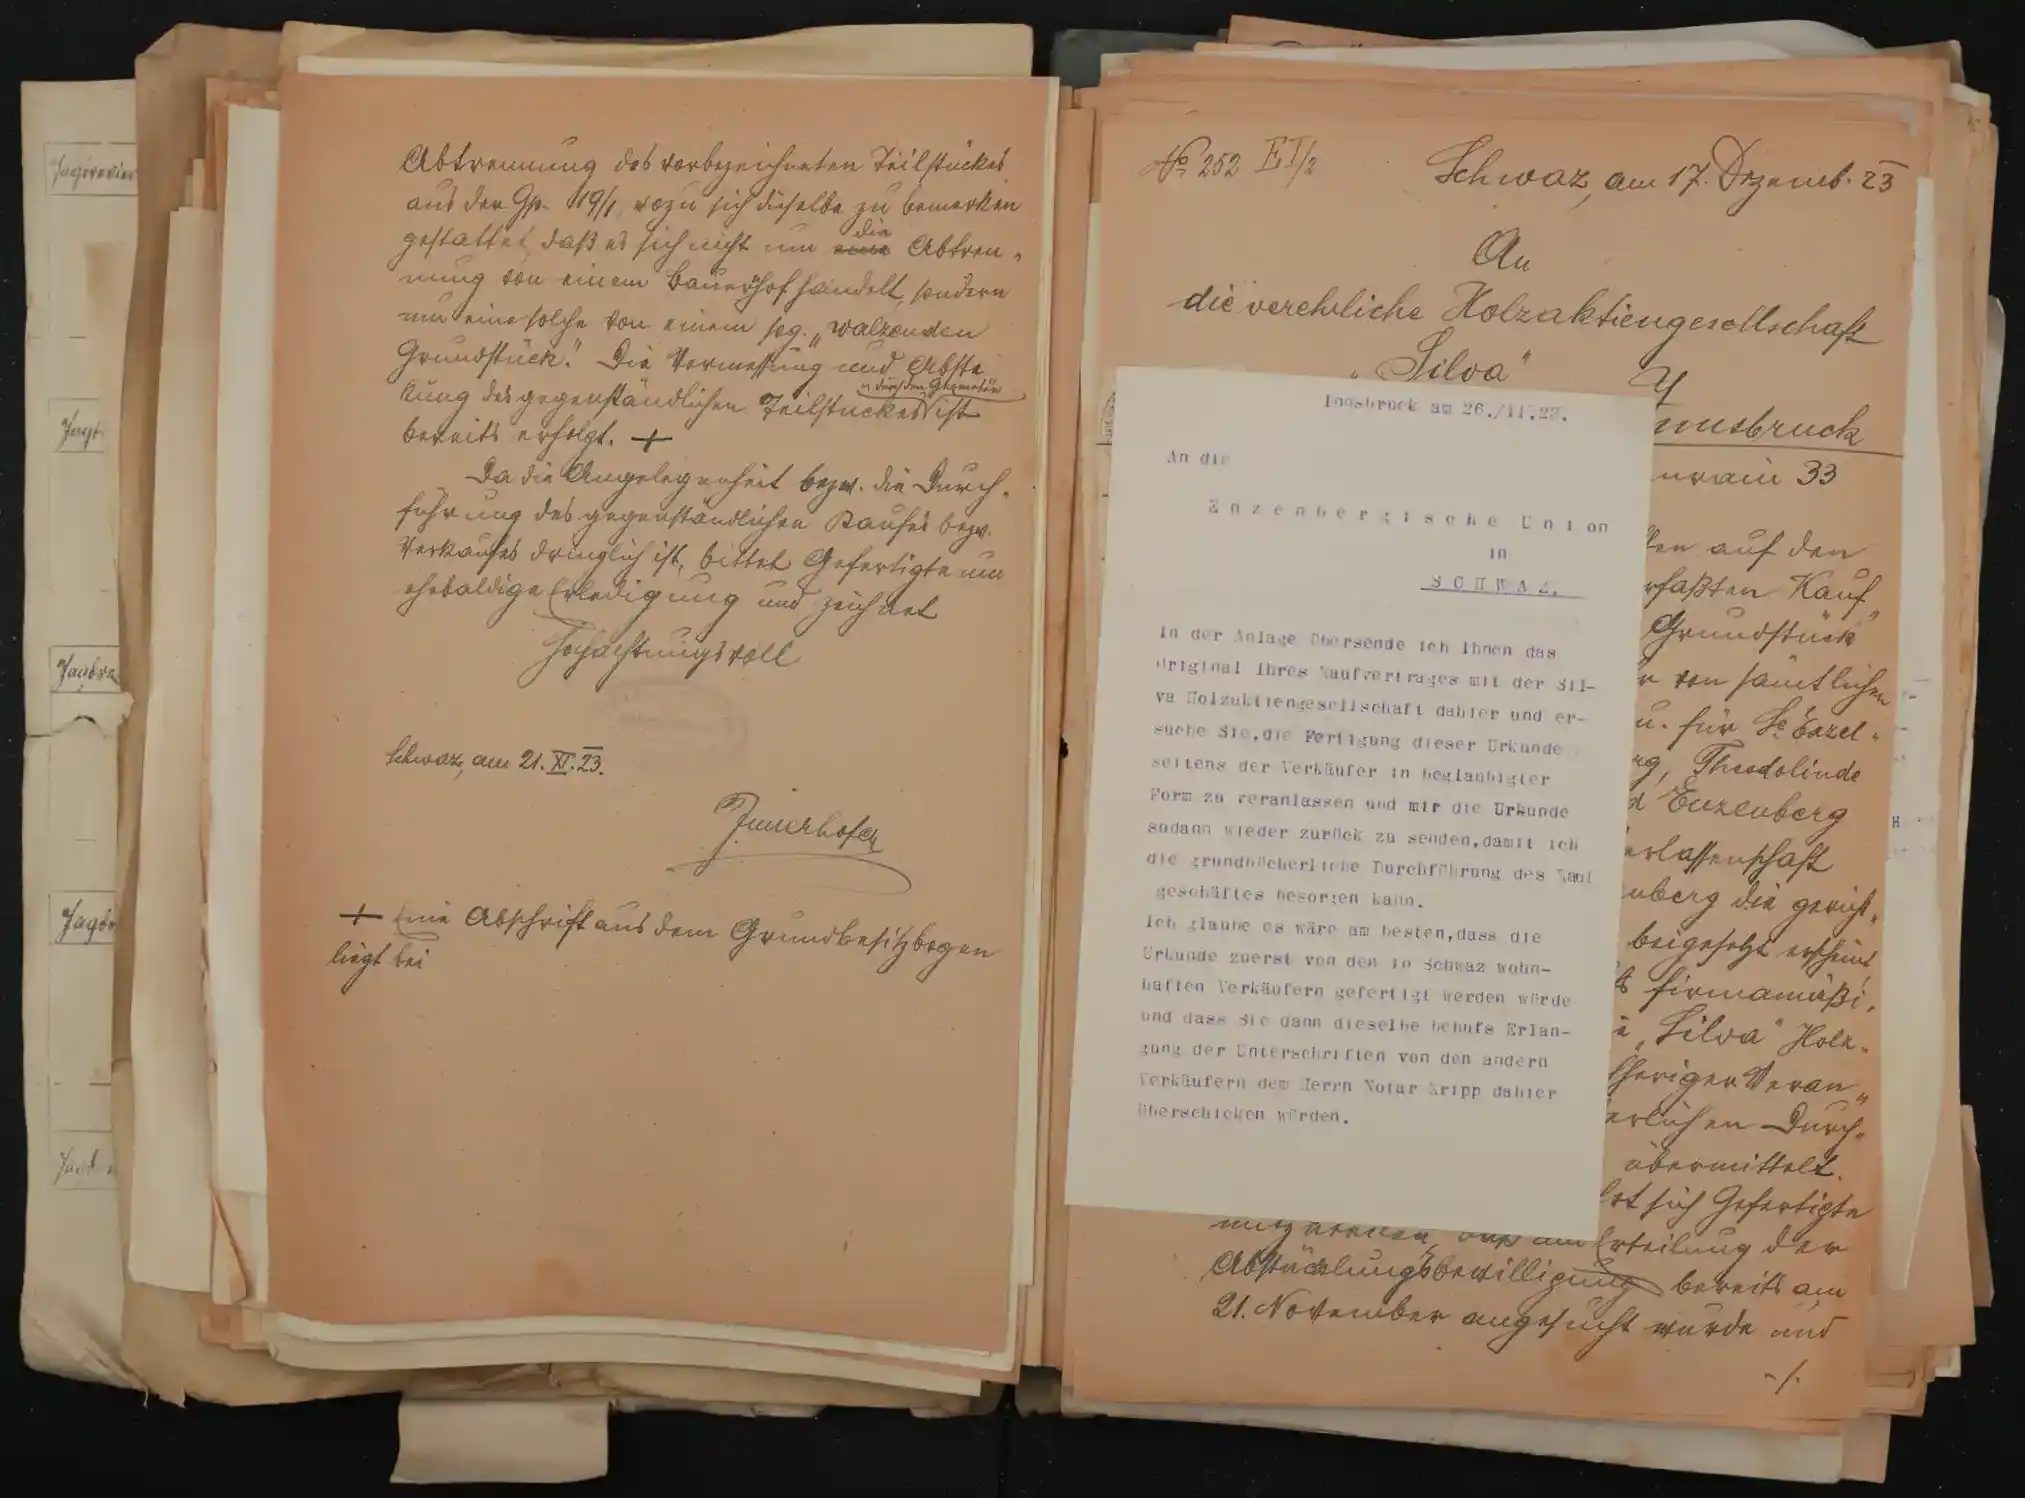 Jagdrevier
Jagd-
Jagdre
Jagdr
Jagd
Abtrennung des vorbezeichneten Teilstückes
aus der Gp. 19/1, wozu sich dieselbe zu bemerken
gestattet, daß es sich nicht um die Abtren-
nung von einem Bauernhof handelt, sondern
um eine solche von einem sog. „walzenden
Grundstück". Die Vermessung und Abste
ckung des gegenständlichen Teilstückes ist
u. durch den Geometer
bereits erfolgt. +
Da die Angelegenheit bezw. die Durch-
führung des gegenständlichen Kaufes bezw.
Verkaufes dringlich ist, bittet Gefertigte um
ehebaldige Erledigung und zeichnet
Hochachtungsvoll
Schwaz, am 21. XI. 23.
Innerhofer
+ Eine Abschrift aus dem Grundbesitzbogen
liegt bei
No 252 EI/2
Schwaz, am 17. Dezemb. 23
An
die verehrliche Holzaktiengesellschaft
„Silva"
nnsbruck
nrain 33
auf den
rfaßten Kauf-
Grundstück
von sämtlichen
u. für Se Exzel-
rg, Theodolinde
d Enzenberg
erlassenschaft
nberg die gericht-
beigesetzt erscheint
firmamäßi-
„Silva" Holz-
heriger Veran-
erlichen Durch-
übermittelt.
sich Gefertigte
Erteilung der
Abstücklungsbewilligung bereits am
21. November angesucht wurde und
-/.
Innsbruck am 26./11.23.
An die
Enzenbergische Union
in
SCHWAZ.
In der Anlage übersende ich Ihnen das
Original Ihres Kaufvertrages mit der Sil-
va Holzaktiengesellschaft dahier und er-
suche Sie,die Fertigung dieser Urkunde
seitens der Verkäufer in beglaubigter
Form zu veranlassen und mir die Urkunde
sodann wieder zurück zu senden,damit ich
die grundbücherliche Durchführung des Kauf
geschäftes besorgen kann.
Ich glaube es wäre am besten,dass die
Urkunde zuerst von den in Schwaz wohn-
haften Verkäufern gefertigt werden würde
und dass Sie dann dieselbe behufs Erlan-
gung der Unterschriften von den andern
Verkäufern dem Herrn Notar Kripp dahier
überschicken würden.